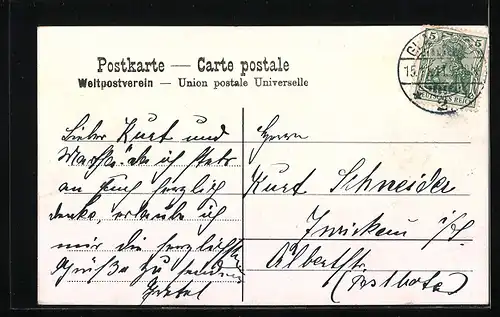 Postkarte — Carte postale
Weltpostverein — Union postale Universelle
5 5
DEUTSCHES REICH
15.
2.
Lieber Kurt und
Martha! da ich stets
an Euch herzlich
denke, erlaube ich
mir die herzlichsten
Grüße zu senden
Herrn
Kurt Schneider
Zwickau i/S
Albertstr.
(Posthotel)